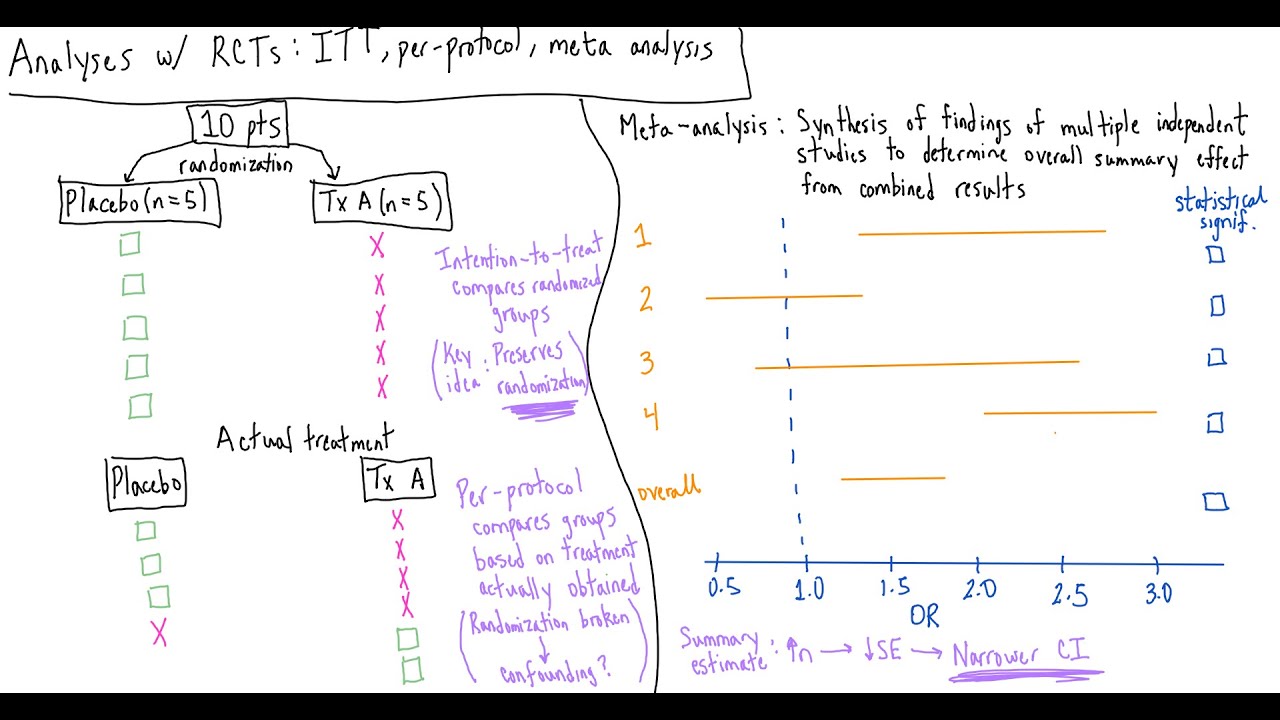 Analyses w/ RCTs: ITT, per-protocol, meta analysis
10 pts
randomization
Placebo (n=5)
Tx A (n=5)
Intention-to-treat
compares randomized
groups
(Key idea: Preserves
randomization)
Actual treatment
Placebo
Tx A
Per-protocol
compares groups
based on treatment
actually obtained
(Randomization broken
↓
confounding?)
Meta-analysis: Synthesis of findings of multiple independent
studies to determine overall summary effect
from combined results
statistical
signif.
1
2
3
4
overall
0.5 1.0 1.5 2.0 2.5 3.0
OR
Summary estimate: ↑n → ↓SE → Narrower CI